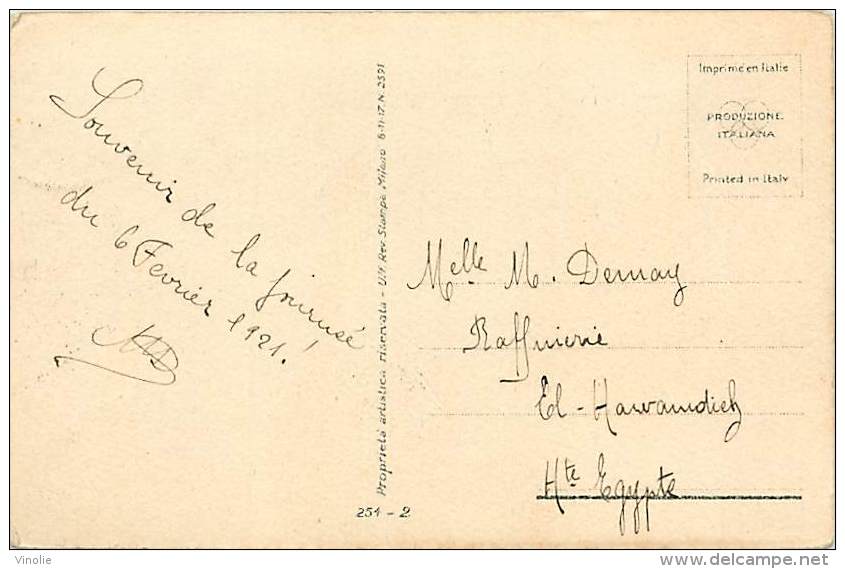 Souvenir de la journée
du 6 Fevrier 1921!
Proprietà artistica riservata - Uff. Rev. Stampa Milano 8-11-17. N. 2591
254 - 2
Imprimé en Italie
PRODUZIONE
ITALIANA
Printed in Italy
Melle M. Demay
Raffinerie
El-Hawamdieh
Hte Egypte
Vinolie
www.delcampe.net